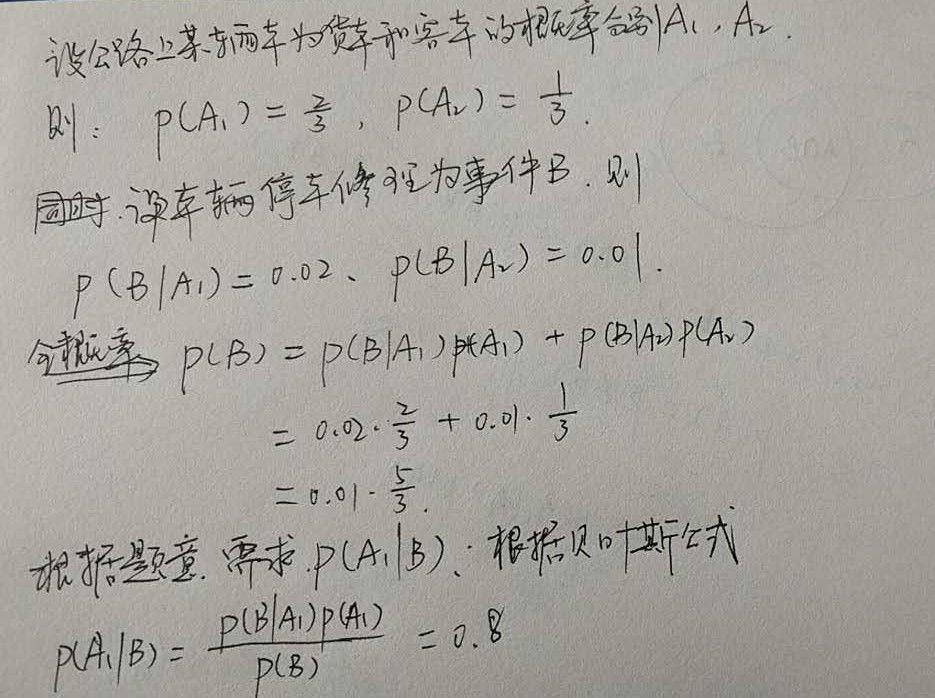 设公路上某辆车为货车和客车的概率分别A₁，A₂.
则： P(A₁) = 2/3 , P(A₂) = 1/3.
同时.设车辆停车修理为事件B.则
P(B|A₁) = 0.02、P(B|A₂) = 0.01.
全概率 P(B) = P(B|A₁)P(A₁) + P(B|A₂)P(A₂)
= 0.02·2/3 + 0.01·1/3
= 0.01·5/3.
根据题意.需求.P(A₁|B)；根据贝叶斯公式
P(A₁|B) = P(B|A₁)P(A₁)/P(B) = 0.8